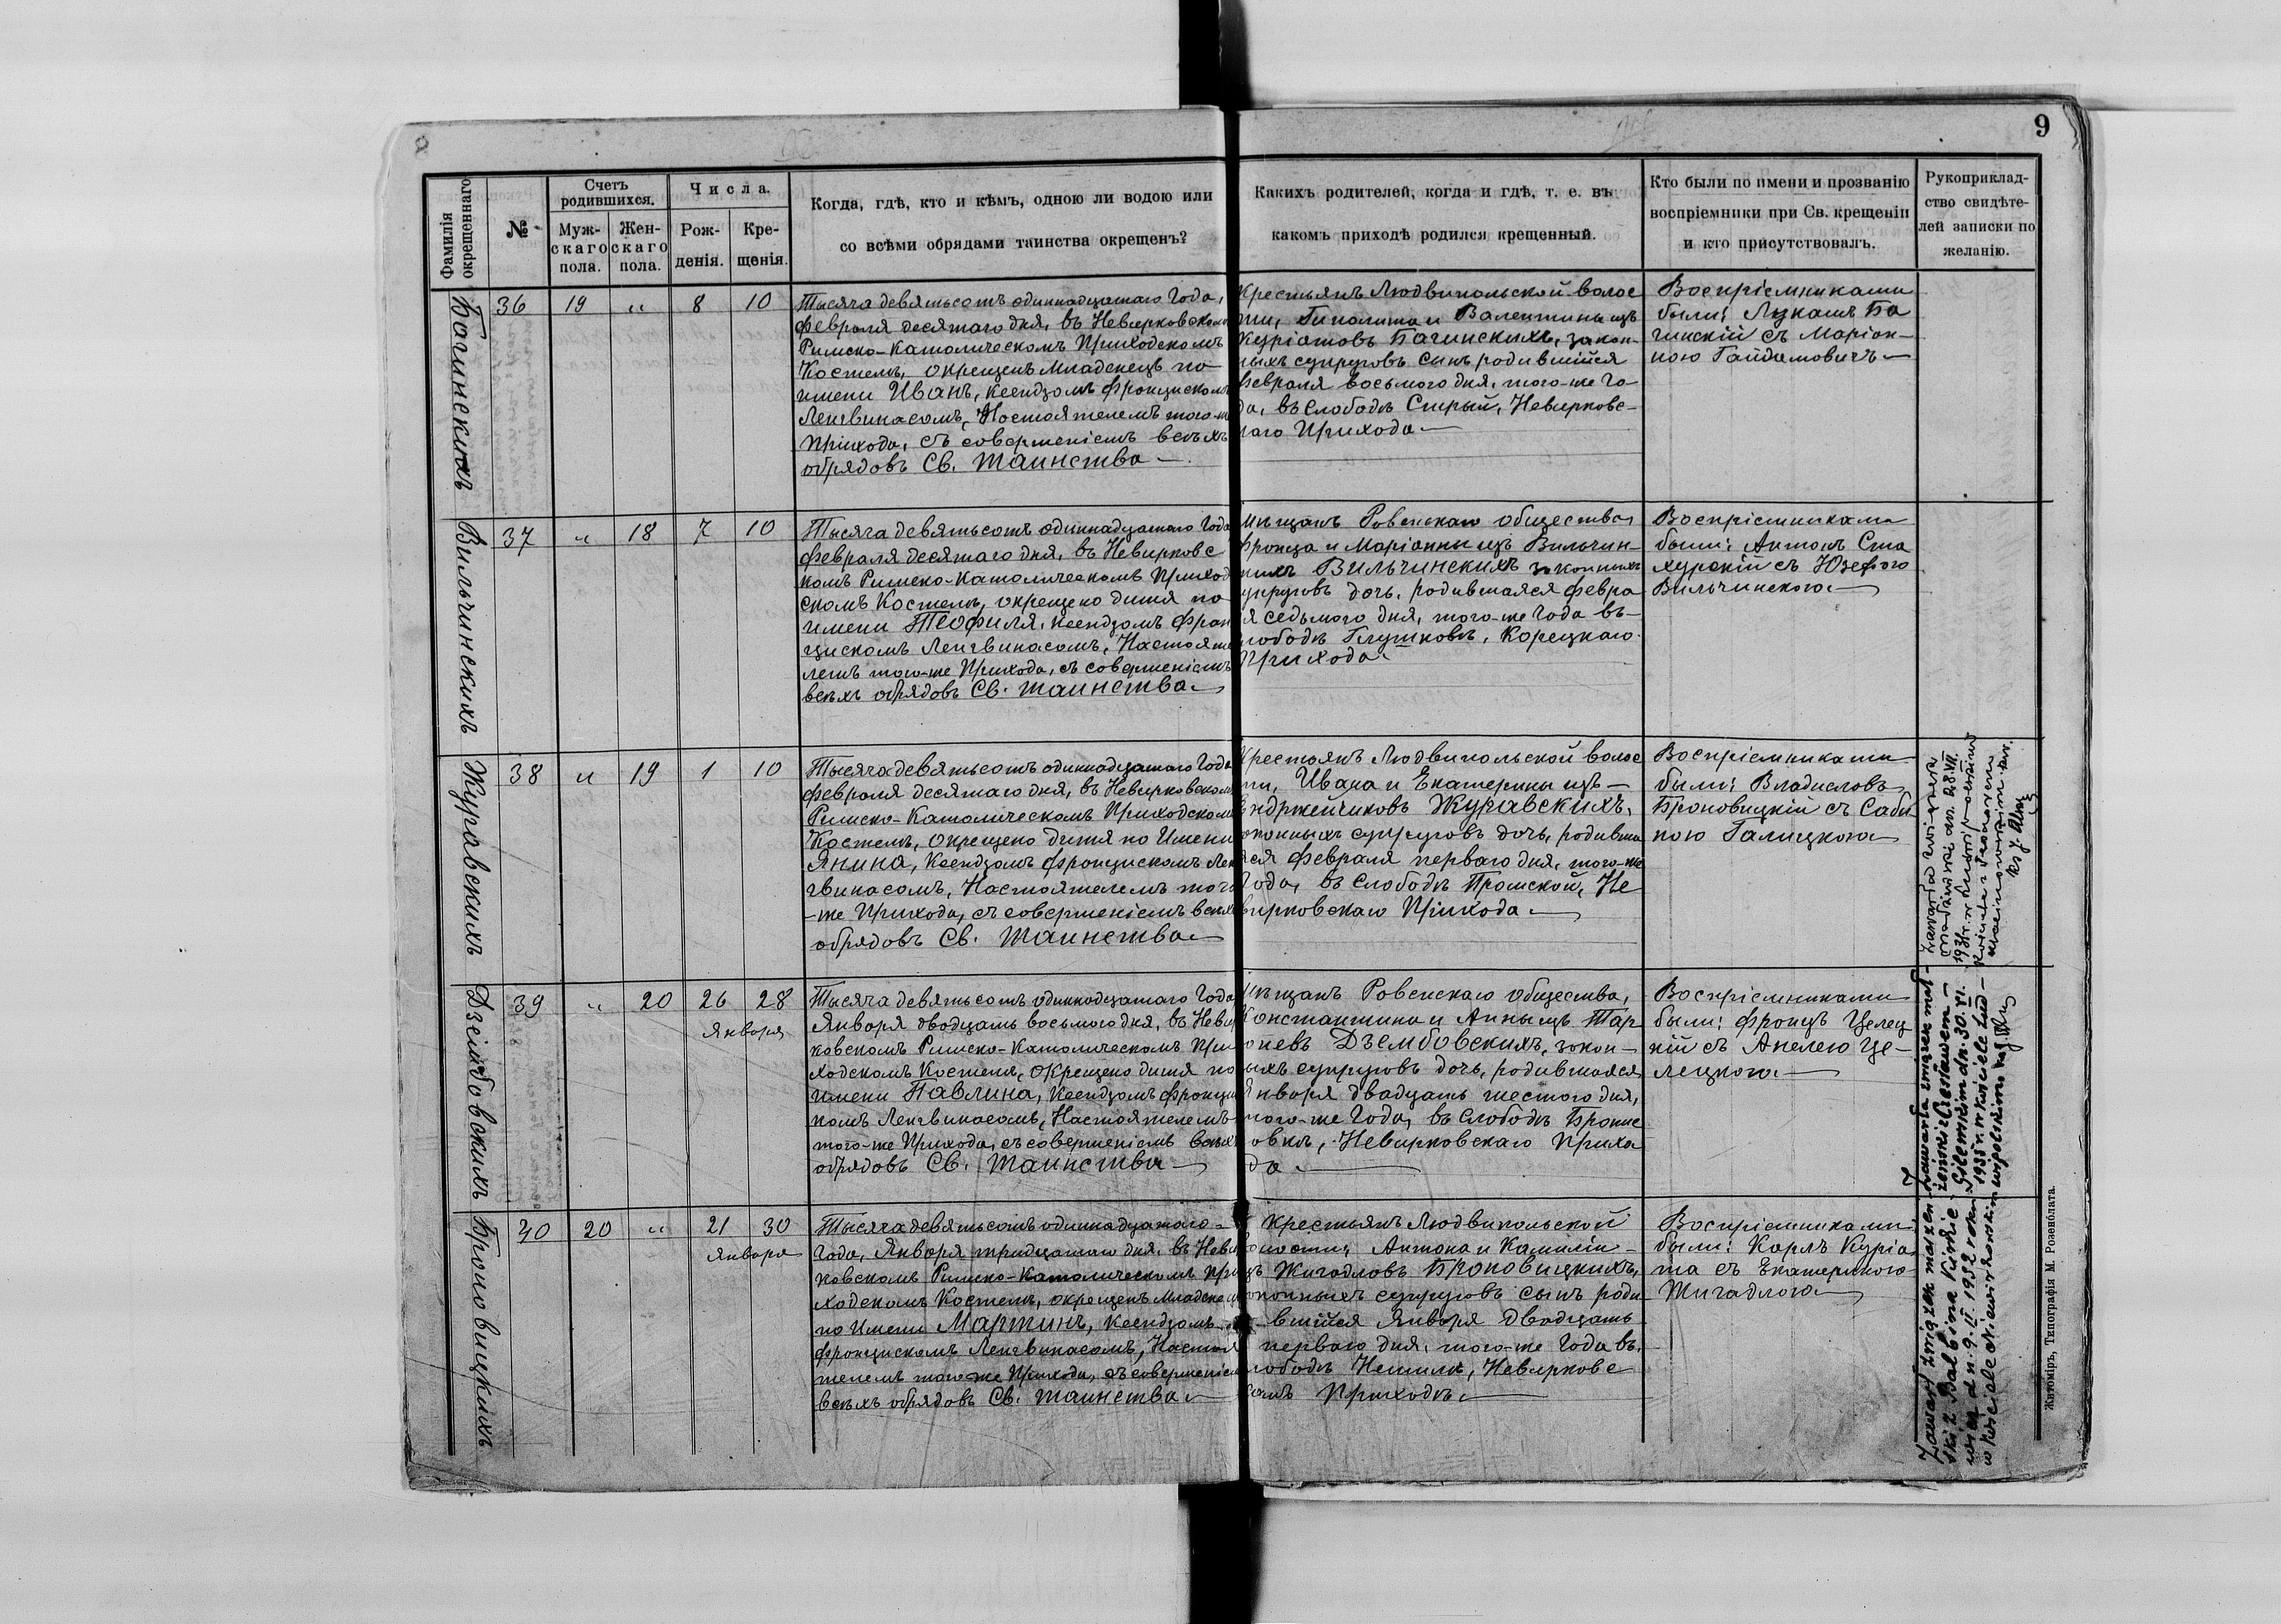 9
Фамилія окрещеннаго
№
Счетъ родившихся.
Мужскаго пола.
Женскаго пола.
Числа.
Рожденія.
Крещенія.
Когда, гдѣ, кто и кѣмъ, одною ли водою или
со всѣми обрядами таинства окрещенъ?
Какихъ родителей, когда и гдѣ, т. е. въ
какомъ приходѣ родился крещенный.
Кто были по имени и прозванію
воспріемники при Св. крещеніи
и кто присутствовалъ.
Рукоприклад-
ство свидѣте-
лей записки по
желанію.
Багинскихъ
36 19 " 8 10
Тысяча девятьсотъ одиннадцатаго Года,
февраля десятаго дня, въ Невирковском
Римско-Католическомъ Приходскомъ
Костелѣ, окрещенъ Младенецъ по
имени Иванъ, Ксендзомъ Францискомъ
Ленгвинасомъ, Настоятелемъ того-же
Прихода, съ совершеніемъ всѣхъ
обрядовъ Св. Таинства
Крестьянъ Людвипольской волос
ти, Гиполита и Валентины изъ
Куріатовъ Багинскихъ, закон-
ныхъ супруговъ сынъ, родившійся
февраля восьмого дня, того-же Го-
да, въ Слободѣ Стрый, Невирковс-
каго Прихода
Воспріемниками
были: Лукашъ Ба
гинскій съ Маріан-
ною Гайдамовичъ
Вильчинскихъ
37 " 18 7 10
Тысяча девятьсотъ одиннадцатаго Года
февраля десятаго дня, въ Невирковс
комъ Римско-Католическомъ Приход
скомъ Костелѣ, окрещено дитя по
имени Теофиля, Ксендзомъ Фран
цискомъ Ленгвинасомъ, Настояте
лемъ того-же Прихода, съ совершеніемъ
всѣхъ обрядовъ Св. Таинства
Мѣщанъ Ровенскаго общества,
Франца и Маріанны изъ Вильчин-
скихъ Вильчинскихъ законныхъ
супруговъ дочь, родившаяся февра
ля седьмого дня, того-же Года въ
слободѣ Глушковѣ, Корецкаго
Прихода
Воспріемниками
были: Антонъ Ста
хурскій съ Юзефою
Вильчинскою
Журавскихъ
38 " 19 1 10
Тысяча девятьсотъ одиннадцатаго Года
февраля десятаго дня, въ Невирковском
Римско-Католическомъ Приходскомъ
Костелѣ, окрещено дитя по Имени
Янина, Ксендзомъ Францискомъ Лен
гвинасомъ, Настоятелемъ того
-же Прихода, съ совершеніемъ всѣхъ
обрядовъ Св. Таинства
Крестьянъ Людвипольской волос
ти, Ивана и Екатерины изъ
Ендржейчиковъ Журавскихъ,
законныхъ супруговъ дочь, родивша
яся февраля перваго дня, того-же
Года, въ слободѣ Не
вирковскаго Прихода
Воспріемниками
были: Владиславъ
Броновицкій съ Саби
ною Галицкою
Дзембовскихъ
39 " 20 26 28
Января
Тысяча девятьсотъ одиннадцатаго Года
Января двадцать восьмого дня, въ Невир
ковскомъ Римско-Католическомъ При
ходскомъ Костелѣ, окрещено дитя по
имени Павлина, Ксендзомъ Францис
комъ Ленгвинасомъ, Настоятелемъ
того-же Прихода, съ совершеніемъ всѣхъ
обрядовъ Св. Таинства
Мѣщанъ Ровенскаго общества,
Константина и Анны изъ
Дзембовскихъ, закон-
ныхъ супруговъ дочь, родившаяся
Января двадцать шестого дня,
того-же Года, въ слободѣ Бронис
овкѣ, Невирковскаго Прихо
да
Воспріемниками
были: Францъ Целец
кій съ Анелею Це-
лецкою
Броновицкихъ
40 20 " 21 30
Января
Тысяча девятьсотъ одиннадцатаго
Года, Января тридцатаго дня, въ Невир
ковскомъ Римско-Католическомъ При
ходскомъ Костелѣ, окрещенъ Младенец
по Имени Мартинъ, Ксендзомъ
Францискомъ Ленгвинасомъ, Настоя
телемъ того же Прихода, съ совершеніем
всѣхъ обрядовъ Св. Таинства
Крестьянъ Людвипольской
волости, Антона и Камиліи
изъ Жигадловъ Броновицкихъ,
законныхъ супруговъ сынъ роди
вшійся Января двадцать
перваго дня, того-же Года въ
слободѣ Нешилѣ, Невирковс
комъ Приходѣ
Воспріемниками
были: Карлъ Куріа
та съ Екатериною
Жигадлою
Zawarł związek małżeń
ski z Balbiną
dn. 9.II.1932 roku
w kościele Niewirkowskim
Zawarła związek mał-
żeński z Czesławem
dn. 30.VI.
1935 r. w Kościele Lud-
wipolskim
Zawarła
małżeński dn. 28.VII.
1931 r.
Житоміръ, Типографія М. Розенблата.